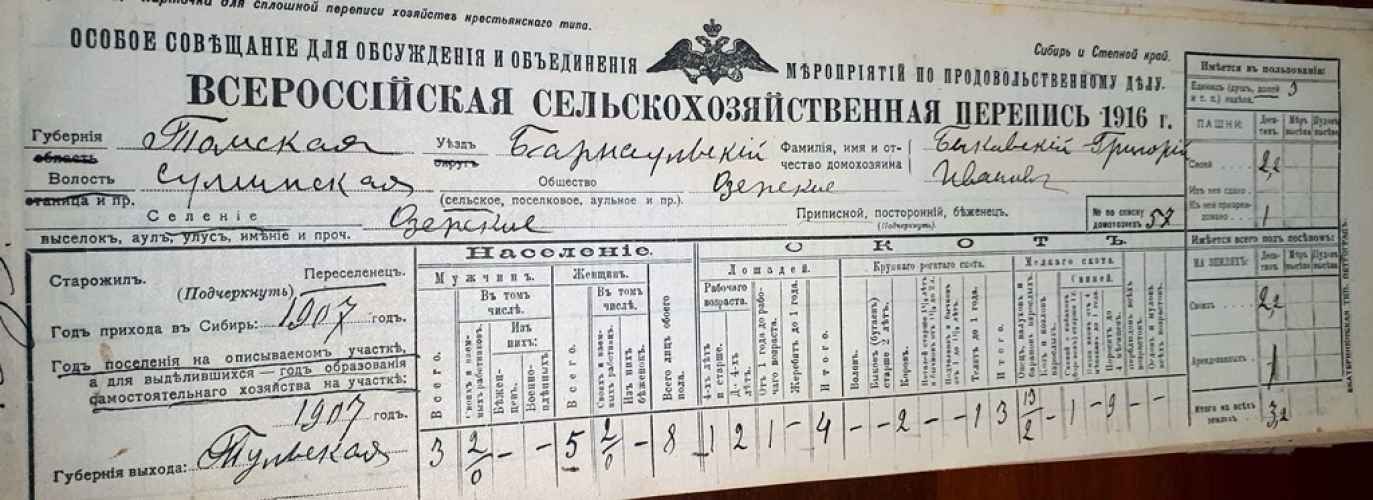 Карточка для сплошной переписи хозяйствъ крестьянскаго типа.
Сибирь и Степной край.
ОСОБОЕ СОВѢЩАНІЕ ДЛЯ ОБСУЖДЕНІЯ И ОБЪЕДИНЕНІЯ МѢРОПРІЯТІЙ ПО ПРОДОВОЛЬСТВЕННОМУ ДѢЛУ.
ВСЕРОССІЙСКАЯ СЕЛЬСКОХОЗЯЙСТВЕННАЯ ПЕРЕПИСЬ 1916 г.
Губернія Томская Уѣздъ Барнаульскій Фамилія, имя и отчество домохозяина Быкавскій Григорій
область округъ Ивановъ
Волость Сулинская Общество Озерское
станица и пр. (сельское, поселковое, аульное и пр.).
Селеніе Озерское Приписной, посторонній, бѣженец. № по списку домохозяевъ 57
выселокъ, аулъ, улусъ, имѣніе и проч. (Подчеркнуть).
Старожилъ. Переселенецъ.
(Подчеркнуть)
Годъ прихода въ Сибирь: 1907 годъ.
Годъ поселенія на описываемомъ участкѣ,
а для выдѣлившихся — годъ образованія
самостоятельнаго хозяйства на участкѣ:
1907 годъ.
Губернія выхода: Тульская
Населеніе.
Мужчинъ. Женщинъ.
Въ томъ числѣ. Въ томъ числѣ.
Изъ нихъ:
Всего.
Своихъ и наемныхъ работниковъ.
Бѣженцевъ.
Военноплѣнныхъ
Всего.
Своихъ и наемныхъ работницъ.
Изъ нихъ бѣженокъ.
Всего лицъ обоего пола.
3 2/0 - - 5 2/0 - 8
СКОТЪ.
Лошадей. Крупнаго рогатаго скота. Мелкаго скота.
Рабочаго возраста.
4-хъ лѣтъ и старше.
До 4-хъ лѣтъ.
Отъ 1 года до рабочаго возраста.
Жеребятъ до 1 года.
Итого.
Воловъ.
Быковъ (бугаевъ) старше 2 лѣтъ.
Коровъ.
Телятъ до 1 года
Итого.
Свиней.
1 2 1 - 4 - - 2 - - 1 3 13/2 - 1 - 9 - -
Имѣется въ пользованіи:
Единицъ (душъ, долей и т. п.) надѣла. 3
ПАШНИ: Десятинъ. Мѣръ высѣва. Пудовъ высѣва.
Своей 2,2
Изъ нея сдано
Къ ней приарендовано 1
Имѣется всего подъ посѣвомъ:
НА ЗЕМЛЯХЪ: Десятинъ. Мѣръ высѣва. Пудовъ высѣва.
Своихъ 2,2
Арендованныхъ 1
Итого на всѣхъ земляхъ 3,2
ЕКАТЕРИНИНСКАЯ ТИП. ПЕТРОГРАДЪ.